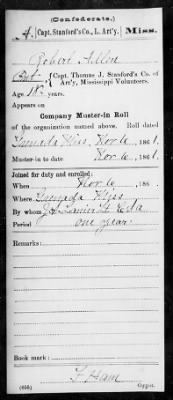 (Confederate.)
A. Capt. Stanford's Co., L. Art'y. Miss.
Robert Allen
Capt. Thomas J. Stanford's Co. of
Art'y, Mississippi Volunteers.
Age 18 years.
Appears on
Company Muster-in Roll
of the organization named above. Roll dated
Grenada Miss, Nov 6, 1861.
Muster-in to date Nov 6, 1861.
Joined for duty and enrolled:
When Nov 6, 186 .
Where Grenada Miss
By whom
Period one year.
Remarks:
Book mark:
(655)
F. Ham
Copyist.